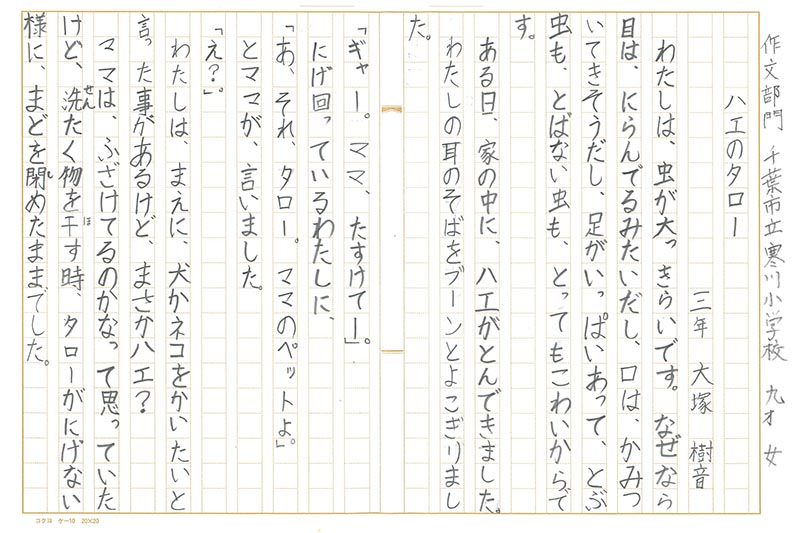 作文部門 千葉市立寒川小学校 九才 女
ハエのタロー
三年 大塚 樹音
わたしは、虫が大っきらいです。なぜなら
目は、にらんでるみたいだし、口は、かみつ
いてきそうだし、足がいっぱいあって、とぶ
虫も、とばない虫も、とってもこわいからで
す。
ある日、家の中に、ハエがとんできました。
わたしの耳のそばをブーンとよこぎりまし
た。
「ギャー。ママ、たすけてー」。
にげ回っているわたしに、
「あ、それ、タロー。ママのペットよ。」
とママが、言いました。
「え?」。
わたしは、まえに、犬かネコをかいたいと
言った事があるけど、まさかハエ?
ママは、ふざけてるのかなって思っていた
けど、洗たく物を干す時、タローがにげない
様に、まどを閉めたままでした。
コクヨ ケー10 20×20